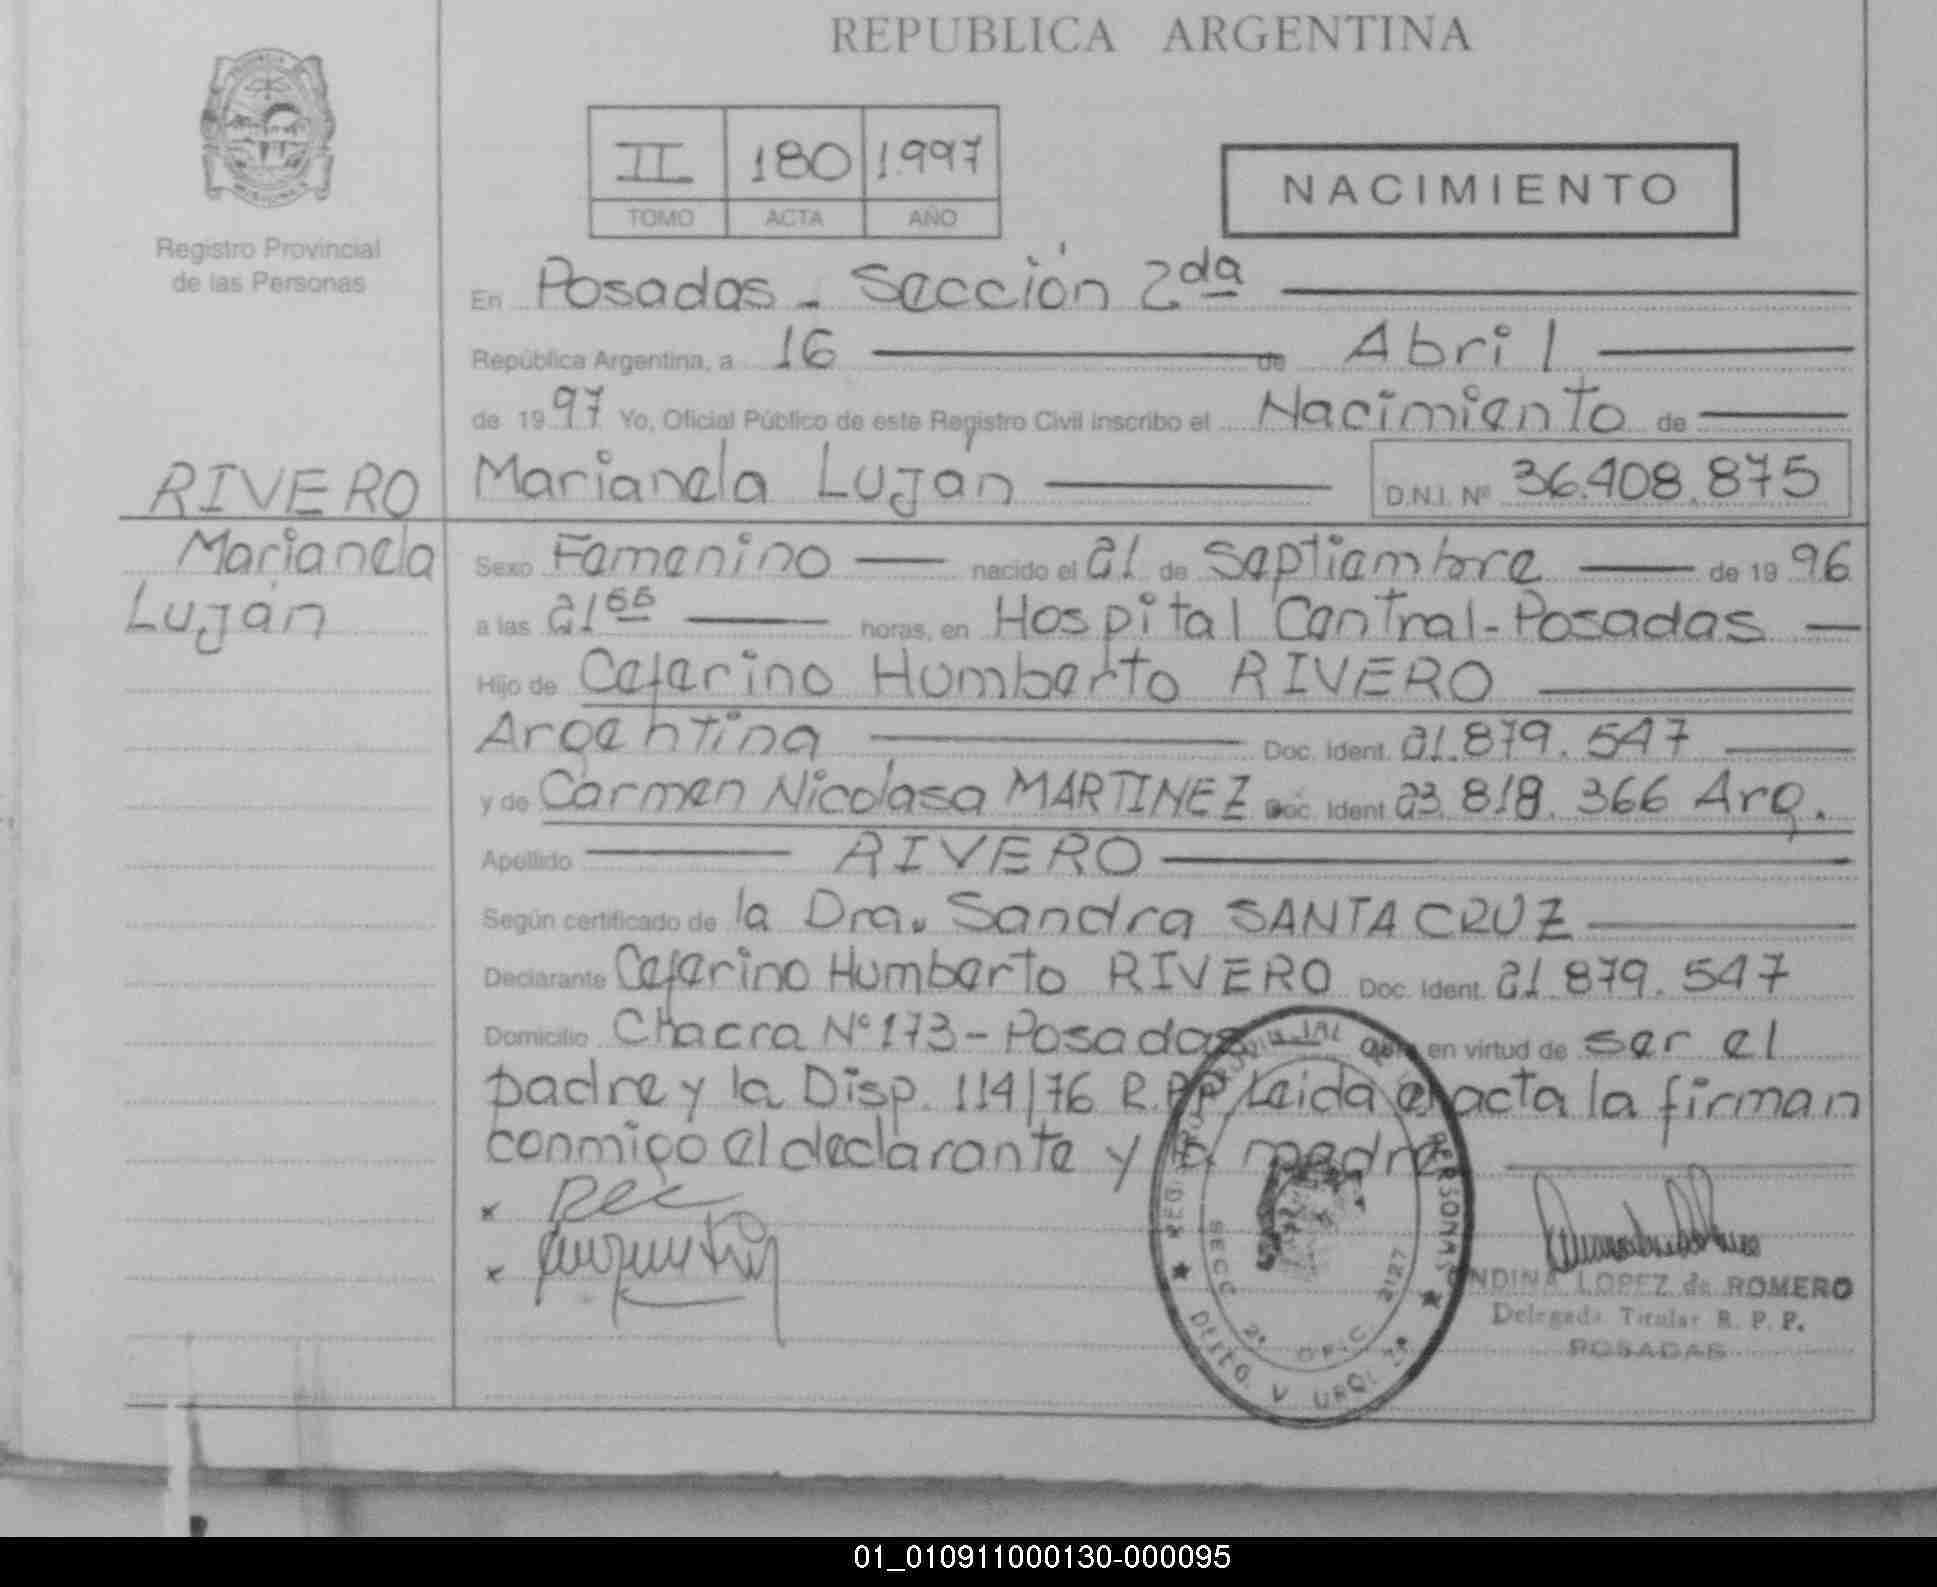 REPUBLICA ARGENTINA
II 180 1.997
TOMO ACTA AÑO
NACIMIENTO
Registro Provincial
de las Personas
En Posadas - Sección 2da
República Argentina, a 16 de Abril
de 1997 Yo, Oficial Público de este Registro Civil inscribo el Nacimiento de
RIVERO
Marianela Luján
Marianela Luján D.N.I. Nº 36.408.875
Sexo Femenino nacido el 21 de Septiembre de 1996
a las 21 horas, en Hospital Central - Posadas
Hijo de Ceferino Humberto RIVERO
Argentina Doc. Ident. 21.879.547
y de Carmen Nicolasa MARTINEZ Doc. Ident 23.818.366 Arg.
Apellido RIVERO
Según certificado de la Dra. Sandra SANTA CRUZ
Declarante Ceferino Humberto RIVERO Doc. Ident. 21.879.547
Domicilio Chacra Nº 173 - Posadas en virtud de ser el
padre y la Disp. 114/76 R.P.P. Leida el acta la firman
conmigo el declarante y la madre
LOPEZ de ROMERO
Delegada Titular R. P. P.
POSADAS
PERSONAS
SECC 2ª OFIC 2127
01_010911000130-000095